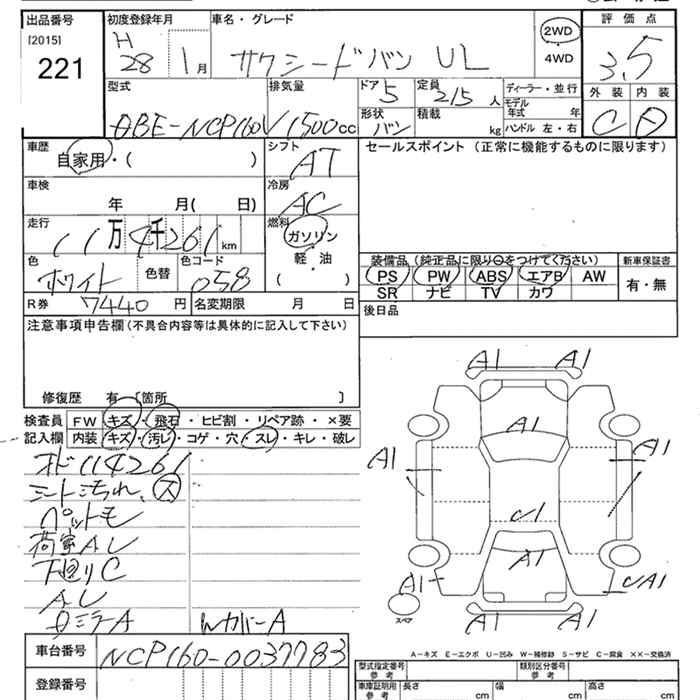 出品番号 初度登録年月 車名・グレード 評価点
[2015] H 28 1月 サクシードバン UL 2WD 3.5
221 4WD
型式 排気量 ドア 5 定員 2/5人 ディーラー・並行 外装 内装
DBE-NCP160V 1500cc 形状 バン 積載 kg モデル年式 年 C
ハンドル 左・右
車歴 シフト セールスポイント (正常に機能するものに限ります)
自家用・( ) AT
車検 冷房
年 月( 日) AC
走行 燃料
11万4千261km ガソリン
色 色コード 軽・油
ホワイト 色替 058 ( )
装備品 (純正品に限り○をつけてください) 新車保証書
PS PW ABS エアB AW 有・無
SR ナビ TV カワ
R券 7440円 名変期限 月 日 後日品
注意事項申告欄(不具合内容等は具体的に記入して下さい)
修復歴 有 [箇所 ]
検査員 FW キズ・飛石・ヒビ割・リペア跡・×要
記入欄 内装 キズ・汚レ・コゲ・穴・スレ・キレ・破レ
オド114261
シート汚れ、ス
荷室AU
下回りC
AU
A1 A1
A1
A1 A1
A1
A1 A1
A1 A1
スペア
A-キズ E-エクボ U-凹み W-補修跡 S-サビ C-腐食 ××-交換済
車台番号 NCP160-0037783
登録番号
型式指定番号 参考 類別区分番号 参考
車庫証明用 参考 長さ cm 幅 cm 高さ cm